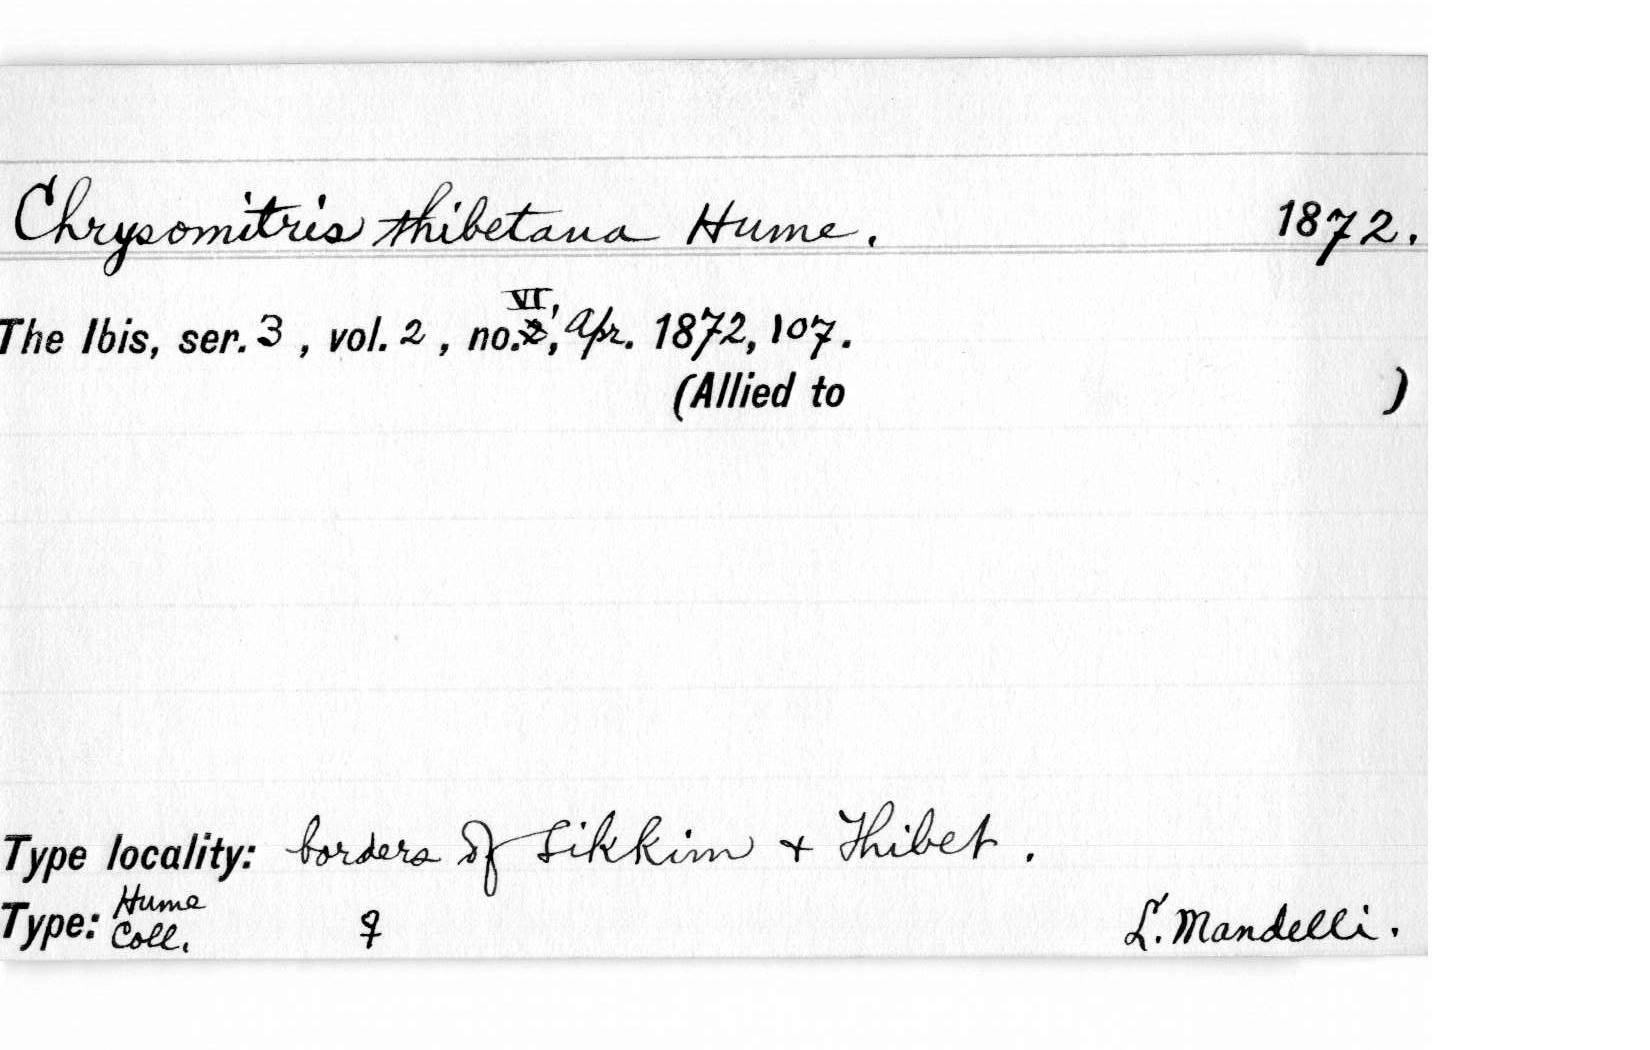 Chrysomitris thibetana Hume. 1872.
The Ibis, ser. 3, vol. 2, no. VI, Apr. 1872, 107.
(Allied to )
Type locality: borders of Sikkim + Thibet.
Type: Hume Coll. ♀ L. Mandelli.